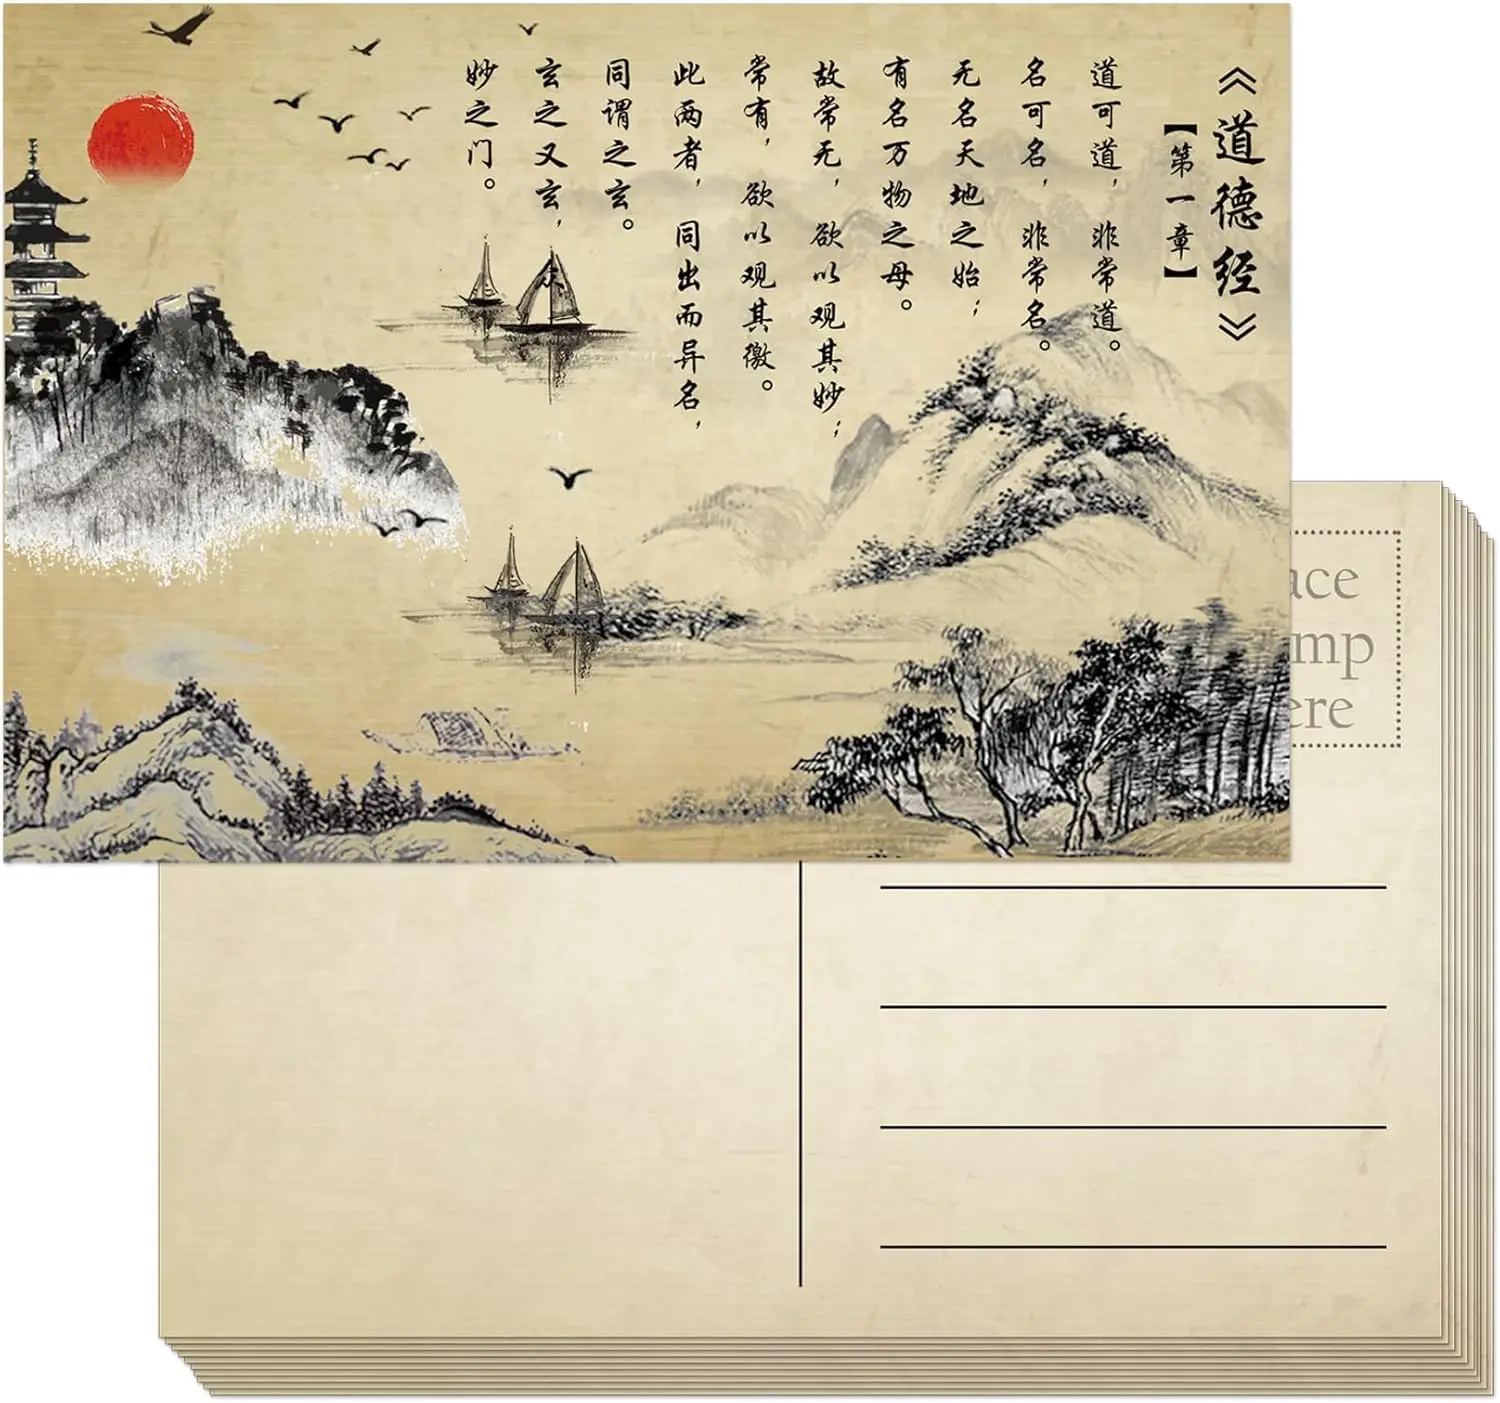 《道德经》
【第一章】
道可道，非常道。
名可名，非常名。
无名天地之始；
有名万物之母。
故常无，欲以观其妙；
常有，欲以观其徼。
此两者，同出而异名，
同谓之玄。
玄之又玄，
妙之门。
ace
mp
ere